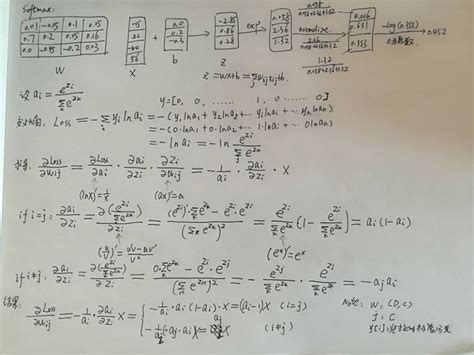 Softmax:
0.01 -0.05 0.1 0.05
0.7 0.2 0.05 0.16
0.0 -0.45 -0.2 0.03
-15
22
-44
56
+
0.0
0.2
-0.3
-2.85
0.86
0.28
exp
0.058
2.36
1.32
normalize
0.016
0.631
0.353
-log(0.353)
0.452
W x b z = wx+b = Σ wij xj + b
设 ai = e^zi / Σk e^zk
y = [0, 0, ... 1, 0 ... 0]
Loss = -Σi yi ln ai = -(y1 lna1 + y2 lna2 + ... yi lnai + ... yn lnan)
= -(0·lna1 + 0·lna2 + ... 1·lnai ... 0 lnan)
= -ln ai = -ln e^zi / Σk e^zk
求导: ∂Loss/∂wij = ∂Loss/∂ai · ∂ai/∂zi · ∂zi/∂wij = -1/ai · ∂ai/∂zi · x
(lnx)' = 1/x (ax)' = a
if i=j: ∂ai/∂zi = ∂(e^zi / Σk e^zk)/∂zi = ((e^zi)'·Σk e^zk - e^zi·e^zj) / (Σk e^zk)² = e^zi / Σk e^zk (1 - e^zi / Σk e^zk) = ai(1-ai)
(u/v)' = (u'v - uv')/v² (e^x)' = e^x
if i≠j, ∂ai/∂zi = ∂(e^zi / Σk e^zk)/∂zi = (0·Σk e^zk - e^zi·e^zj) / (Σk e^zk)² = -e^zj / Σk e^zk · e^zi / Σk e^zk = -aj ai
结果: ∂Loss/∂wij = -1/ai · ∂ai/∂zi x = { -1/ai · ai(1-ai)·x = (ai-1)x (i=j)
-1/ai (-aj·ai)·x = aj x (i≠j)
Note: W, (D, C)
j: C